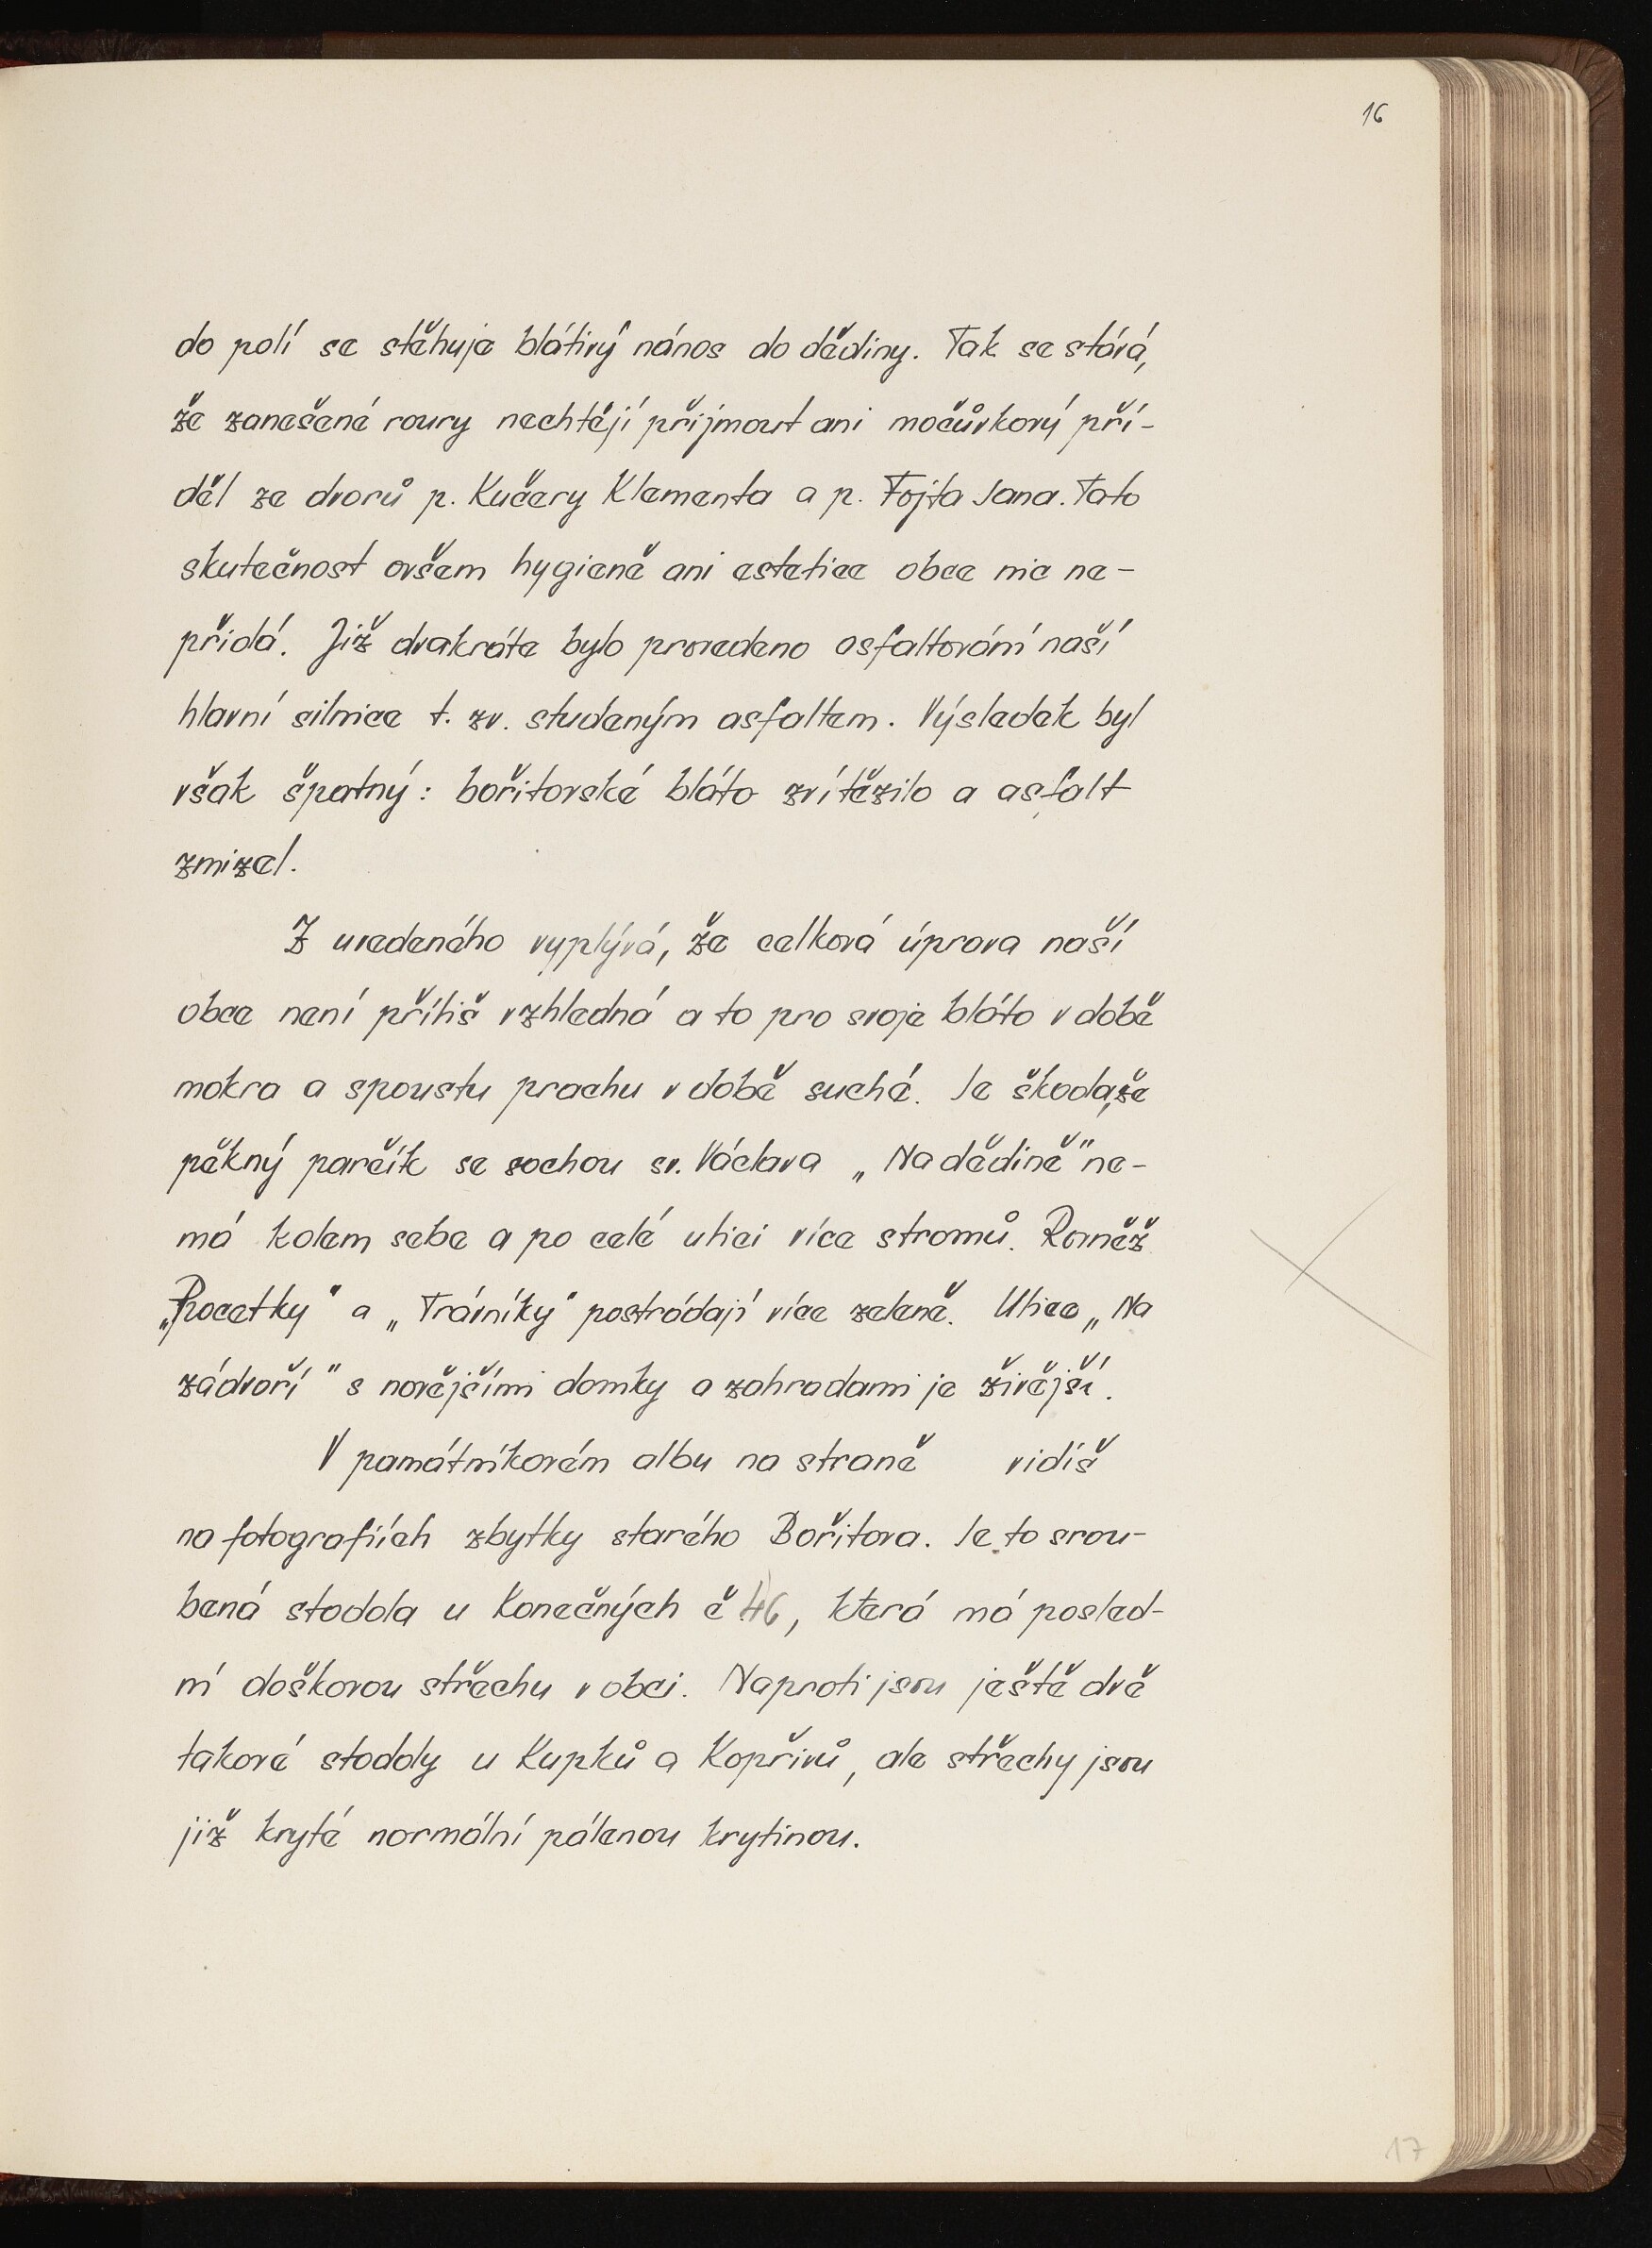 16
do polí se stěhuje blátivý nános do dědiny. Tak se stává,
že zanešené roury nechtějí přijmout ani močůvkový pří-
děl ze dvorů p. Kučery Klementa a p. Fojta Jana. Tato
skutečnost ovšem hygieně ani estetice obce nic ne-
přidá. Již dvakráte bylo provedeno asfaltování naší
hlavní silnice t. zv. studeným asfaltem. Výsledek byl
však špatný: bořitovské bláto zvítězilo a asfalt
zmizel.
Z uvedeného vyplývá, že celková úprava naší
obce není příliš vzhledná a to pro svoje bláto v době
mokra a spoustu prachu v době suché. Je škoda, že
pěkný parčík se sochou sv. Václava „Na dědině" ne-
má kolem sebe a po celé ulici více stromů. Rovněž
„Pocetky" a „Trávníky" postrádají více zeleně. Ulice „Na
zádvoří" s novějšími domky a zahradami je živější.
V památníkovém albu na straně vidíš
na fotografiích zbytky starého Bořitova. Je to srou-
bená stodola u Konečných č 46, která má posled-
ní doškovou střechu v obci. Naproti jsou ještě dvě
takové stodoly u Kupků a Kopřivů, ale střechy jsou
již kryté normální pálenou krytinou.
17